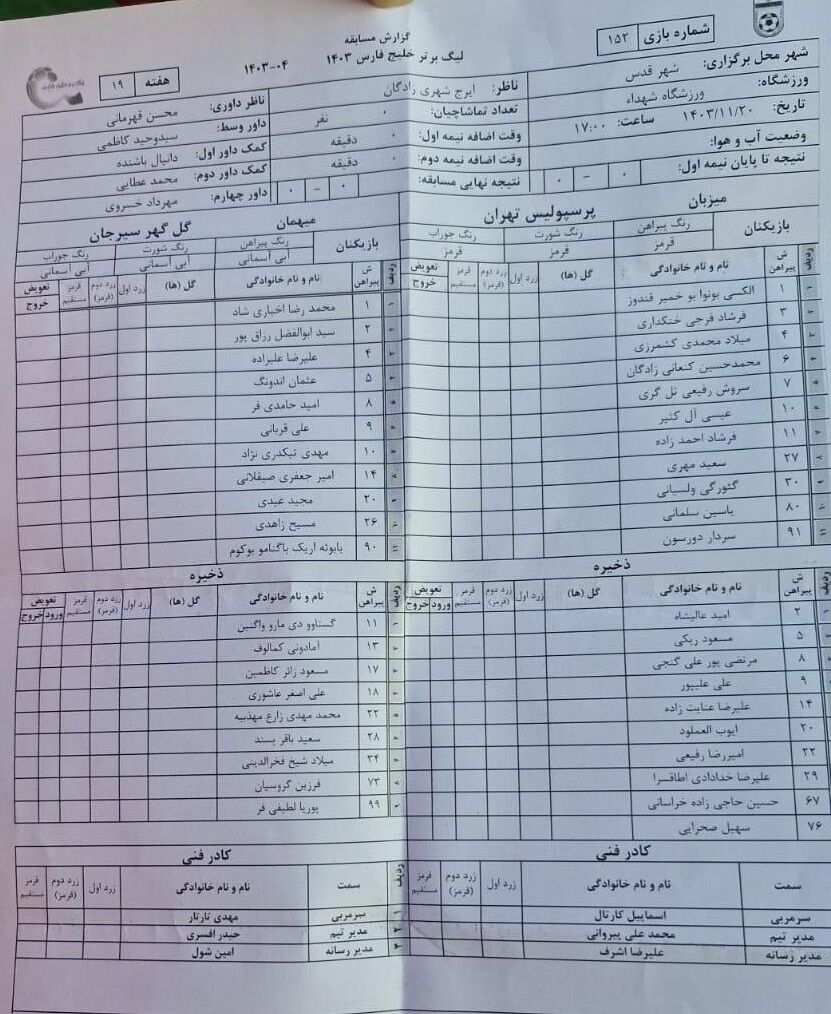 گزارش مسابقه
لیگ برتر خلیج فارس ۱۴۰۳ ۰۴-۱۴۰۳
شماره بازی ۱۵۲
هفته ۱۹
شهر محل برگزاری: شهر قدس
ورزشگاه: ورزشگاه شهداء
تاریخ: ۱۴۰۳/۱۱/۲۰ ساعت: ۱۷:۰۰
وضعیت آب و هوا:
نتیجه تا پایان نیمه اول: ۰ - ۰
ناظر: ایرج شهری زادگان
تعداد تماشاچیان: ۰ نفر
وقت اضافه نیمه اول: ۰ دقیقه
وقت اضافه نیمه دوم: ۰ دقیقه
نتیجه نهایی مسابقه: ۰ - ۰
ناظر داوری: محسن قهرمانی
داور وسط: سیدوحید کاظمی
کمک داور اول: دانیال باشنده
کمک داور دوم: محمد عطایی
داور چهارم: مهرداد خسروی
میزبان پرسپولیس تهران
بازیکنان رنگ پیراهن رنگ شورت رنگ جوراب
قرمز قرمز قرمز
ردیف ش پیراهن نام و نام خانوادگی گل (ها) زرد اول زرد دوم (قرمز) قرمز مستقیم تعویض خروج
۱ ۱ الکسی بونوا بو خمیر قندوز
۲ ۳ فرشاد فرجی خنکداری
۳ ۴ میلاد محمدی کشمرزی
۴ ۶ محمدحسین کنعانی زادگان
۵ ۷ سروش رفیعی تل گری
۶ ۱۰ عیسی آل کثیر
۷ ۱۱ فرشاد احمد زاده
۸ ۲۷ سعید مهری
۹ ۳۰ گئورگی ولسیانی
۱۰ ۸۰ یاسین سلمانی
۱۱ ۹۱ سردار دورسون
ذخیره
ش پیراهن نام و نام خانوادگی گل (ها) زرد اول زرد دوم (قرمز) قرمز مستقیم تعویض ورود خروج
۲ امید عالیشاه
۵ مسعود ریکی
۸ مرتضی پور علی گنجی
۹ علی علیپور
۱۴ علیرضا عنایت زاده
۲۰ ایوب العملود
۲۲ امیررضا رفیعی
۲۹ علیرضا خدادادی اطاقسرا
۶۷ حسین حاجی زاده خراسانی
۷۶ سهیل صحرایی
کادر فنی
سمت نام و نام خانوادگی زرد اول زرد دوم (قرمز) قرمز مستقیم
سرمربی اسماییل کارتال
مدیر تیم محمد علی پیروانی
مدیر رسانه علیرضا اشرف
میهمان گل گهر سیرجان
بازیکنان رنگ پیراهن رنگ شورت رنگ جوراب
آبی آسمانی آبی آسمانی آبی آسمانی
ردیف ش پیراهن نام و نام خانوادگی گل (ها) زرد اول زرد دوم (قرمز) قرمز مستقیم تعویض خروج
۱ ۱ محمد رضا اخباری شاد
۲ ۲ سید ابوالفضل رزاق پور
۳ ۴ علیرضا علیزاده
۴ ۵ عثمان اندونگ
۵ ۸ امید حامدی فر
۶ ۹ علی قربانی
۷ ۱۰ مهدی تیکدری نژاد
۸ ۱۴ امیر جعفری صیقلانی
۹ ۲۰ مجید عیدی
۱۰ ۲۶ مسیح زاهدی
۱۱ ۹۰ یابوئه اریک باگنامو بوکوم
ذخیره
ردیف ش پیراهن نام و نام خانوادگی گل (ها) زرد اول زرد دوم (قرمز) قرمز مستقیم تعویض ورود خروج
۱ ۱۱ گستاوو دی مارو واگنین
۲ ۱۳ آمادونی کمالوف
۳ ۱۷ مسعود زائر کاظمین
۴ ۱۸ علی اصغر عاشوری
۵ ۲۲ محمد مهدی زارع مهذبیه
۶ ۲۸ سعید باقر پسند
۷ ۳۴ میلاد شیخ فخرالدینی
۸ ۷۳ فرزین گروسیان
۹ ۹۹ پوریا لطیفی فر
کادر فنی
ردیف سمت نام و نام خانوادگی زرد اول زرد دوم (قرمز) قرمز مستقیم
۱ سرمربی مهدی تارتار
۲ مدیر تیم حیدر افسری
۳ مدیر رسانه امین شول